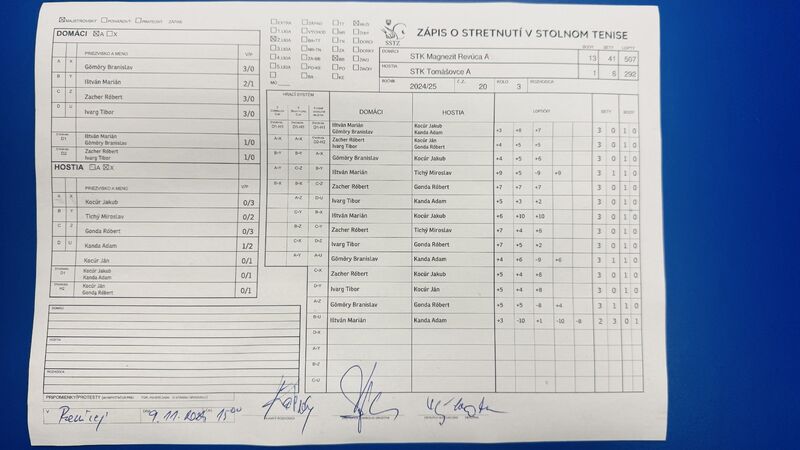 MAJSTROVSKÝ POHÁROVÝ PRIATEĽSKÝ ZÁPAS
DOMÁCI A X
PRIEZVISKO A MENO V/P
A X Gömöry Branislav 3/0
B Y Ištván Marián 2/1
C Z Zacher Róbert 3/0
D U Ivarg Tibor 3/0
D1 Ištván Marián
Gömöry Branislav 1/0
D2 Zacher Róbert
Ivarg Tibor 1/0
HOSTIA A X
PRIEZVISKO A MENO V/P
A X Kocúr Jakub 0/3
B Y Tichý Miroslav 0/2
C Z Gonda Róbert 0/3
D U Kanda Adam 1/2
Kocúr Ján 0/1
D1 Kocúr Jakub
Kanda Adam 0/1
H2 Kocúr Ján
Gonda Róbert 0/1
DOMÁCI
HOSTIA
ROZHODCA
PRIPOMIENKY/PROTESTY
V Revúcej 9.11.2024 15:00
EXTRA ZÁPAD TT MUŽI
1.LIGA VÝCHOD NR ŽENY
2.LIGA BA-TT TN DORCI
3.LIGA NR-TN ZA DORKY
4.LIGA ZA-BB BB ŽIACI
5.LIGA PO-KE PO ŽIAČKY
BA KE
SSTZ
ZÁPIS O STRETNUTÍ V STOLNOM TENISE
DOMÁCI STK Magnezit Revúca A BODY 13 SETY 41 LOPTY 507
HOSTIA STK Tomášovce A 1 6 292
ROČNÍK 2024/25 Č.Z. 20 KOLO 3 ROZHODCA
HRACÍ SYSTÉM DOMÁCI HOSTIA LOPTIČKY SETY BODY
D1-H1 D1-H1 D1-H1 Ištván Marián Kocúr Jakub
Gömöry Branislav Kanda Adam +3 +8 +7 3 0 1 0
A-X A-X D2-H2 Zacher Róbert Kocúr Ján
Ivarg Tibor Gonda Róbert +4 +5 +5 3 0 1 0
B-Y B-Y A-X Gömöry Branislav Kocúr Jakub +4 +5 +6 3 0 1 0
A-Y C-Z B-Y Ištván Marián Tichý Miroslav +9 +5 -9 +9 3 1 1 0
B-X B-X C-Z Zacher Róbert Gonda Róbert +7 +7 +7 3 0 1 0
A-Z D-U Ivarg Tibor Kanda Adam +5 +3 +2 3 0 1 0
C-Y B-X Ištván Marián Kocúr Jakub +6 +10 +10 3 0 1 0
B-Z C-Y Zacher Róbert Tichý Miroslav +7 +4 +8 3 0 1 0
C-X D-Z Ivarg Tibor Gonda Róbert +7 +5 +2 3 0 1 0
A-Y A-U Gömöry Branislav Kanda Adam +4 +6 -9 +6 3 1 1 0
C-X Zacher Róbert Kocúr Jakub +5 +4 +8 3 0 1 0
D-Y Ivarg Tibor Kocúr Ján +5 +4 +6 3 0 1 0
A-Z Gömöry Branislav Gonda Róbert +5 +5 -8 +4 3 1 1 0
B-U Ištván Marián Kanda Adam +3 -10 +1 -10 -8 2 3 0 1
D-X
A-Y
B-Z
C-U